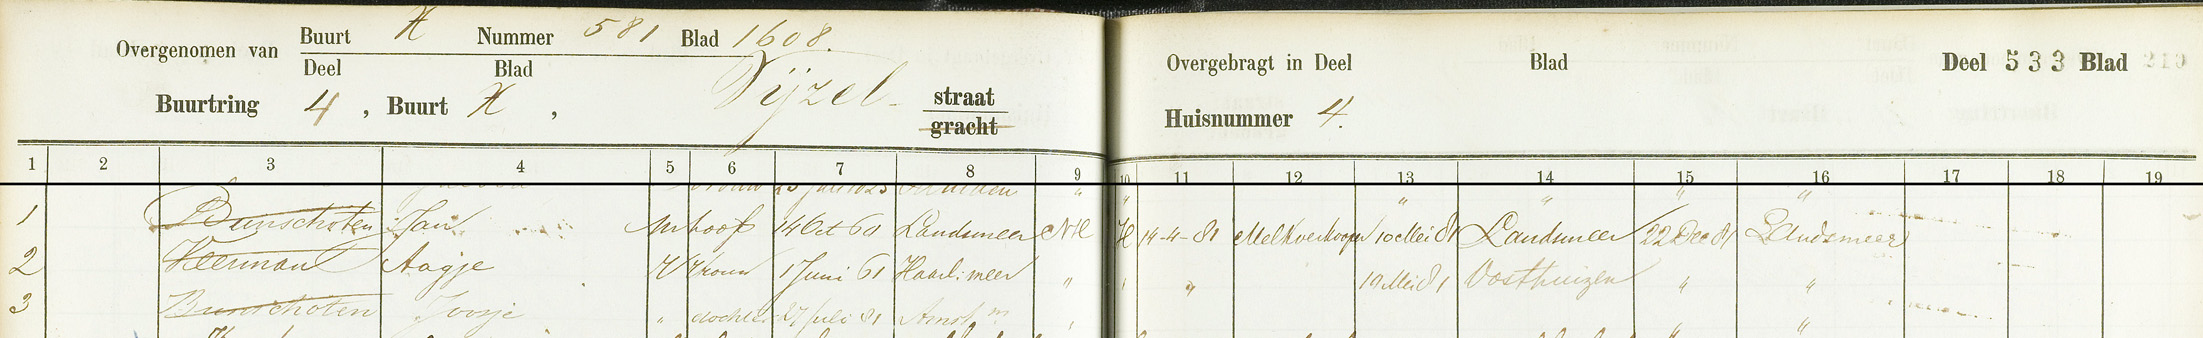 Overgenomen van Buurt X Nummer 581 Blad 1608.
Deel Blad
Buurtring 4, Buurt X, Vijzel- straat
gracht
Overgebragt in Deel Blad Deel 533 Blad 210
Huisnummer 4.
1 2 3 4 5 6 7 8 9 10 11 12 13 14 15 16 17 18 19
" " " " " "
1 Bunschoten Jan M hoof 14 Oct 60 Landsmeer NH H 14-4-81 Melkverkooper 10 Mei 81 Landsmeer 22 Dec 81 Landsmeer
2 Veerman Aagje V Vrouw 1 Juni 61 Haarl: meer " " " 19 Mei 81 Oosthuizen " "
3 Bunschoten Jansje " dochter 27 Juli 81 Amst m " " "